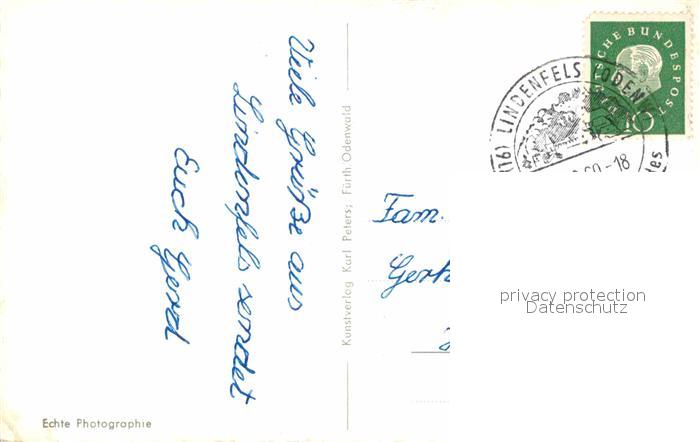 Viele Grüße aus
Lindenfels sendet
Euch Gerd
Echte Photographie
Kunstverlag Karl Peters; Fürth Odenwald
DEUTSCHE BUNDESPOST
10
(16) LINDENFELS (ODENW
60-18
des
Fam.
Gerh
privacy protection
Datenschutz